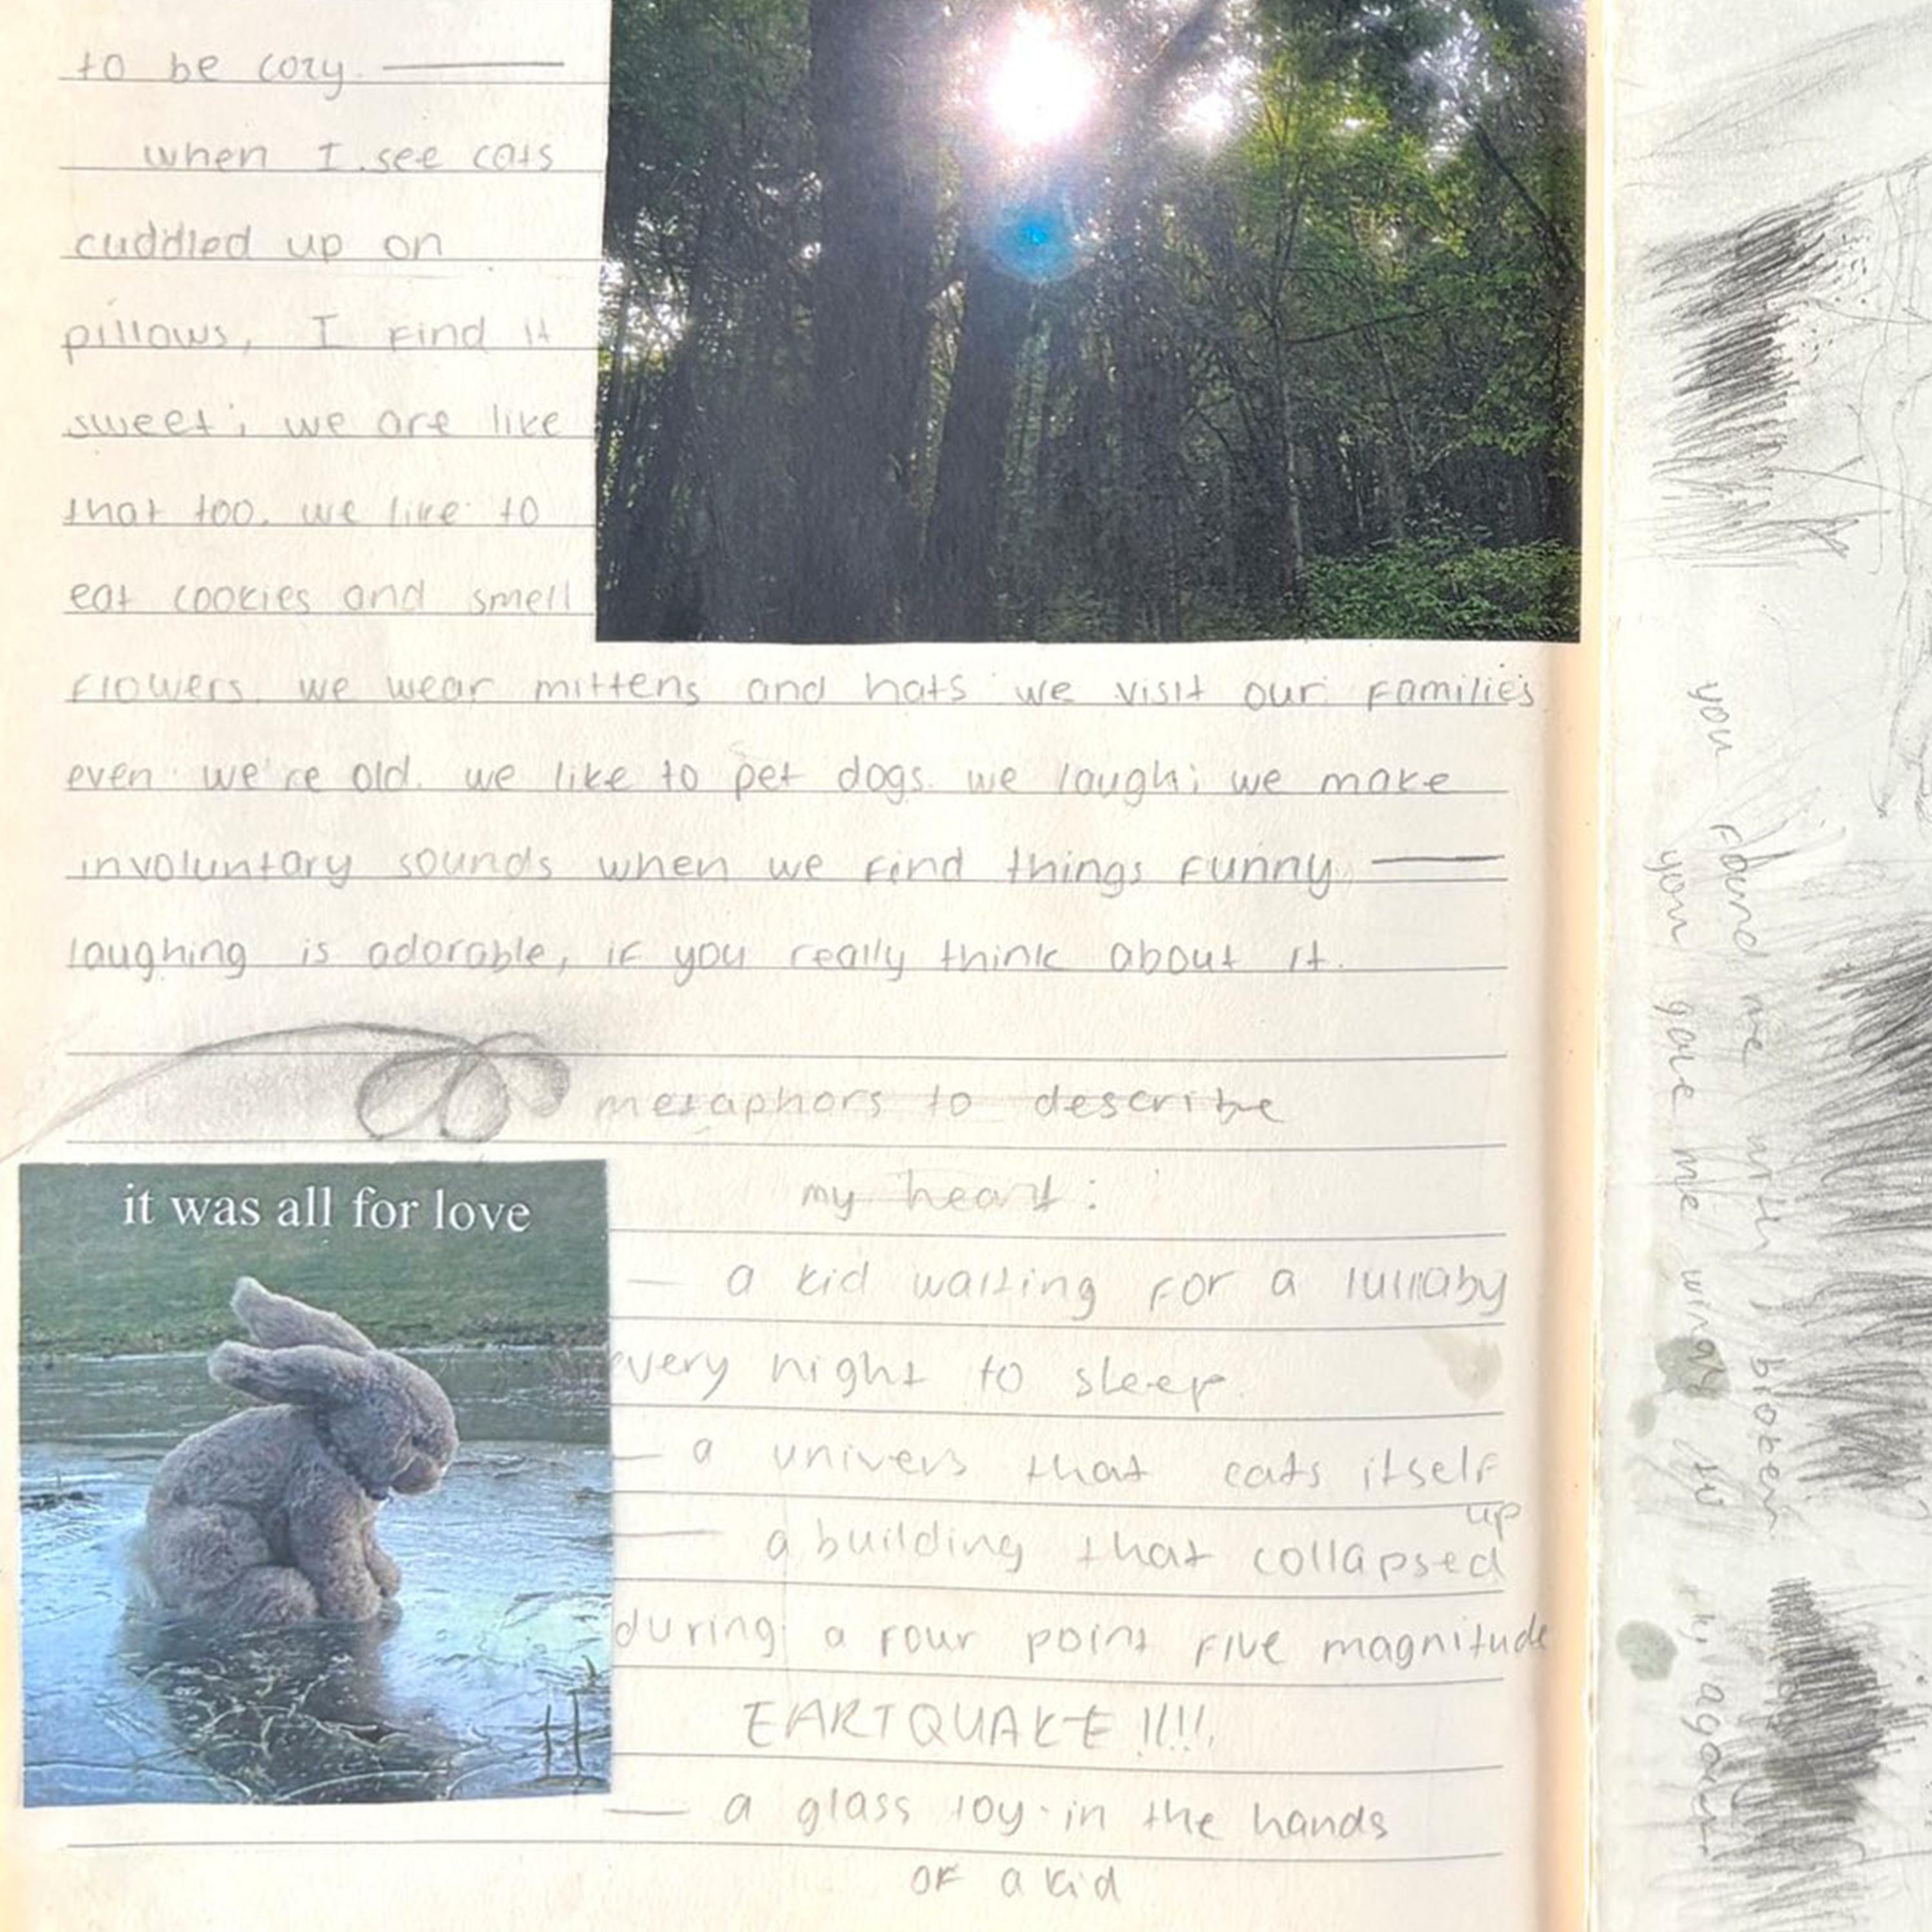 to be cozy ——
when I see cats
cuddled up on
pillows, I find it
sweet; we are like
that too. we like to
eat cookies and smell
flowers. we wear mittens and hats we visit our families
even we're old. we like to pet dogs. we laugh; we make
involuntary sounds when we find things funny ——
laughing is adorable, if you really think about it.
metaphors to describe
my heart:
— a kid waiting for a lullaby
every night to sleep.
— a univers that eats itself
up
— a building that collapsed
during a four point five magnitude
EARTQUAKE !!!!
— a glass toy in the hands
of a kid
it was all for love
you found me with broken
you gave me wings to fly again